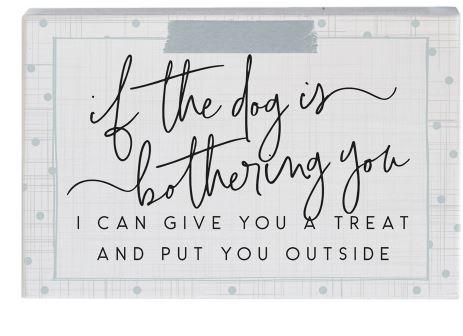 if the dog is
bothering you
I CAN GIVE YOU A TREAT
AND PUT YOU OUTSIDE